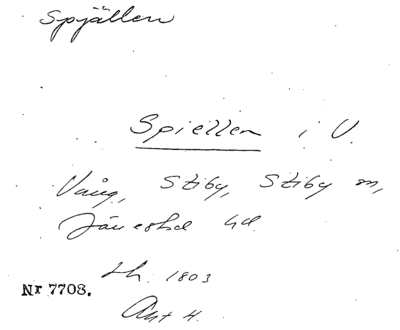 Spjällen
Spiellen i V.
Vång, Stiby, Stiby sn,
Järrestad hd.
Lh. 1803
Nr 7708.
Akt 4.